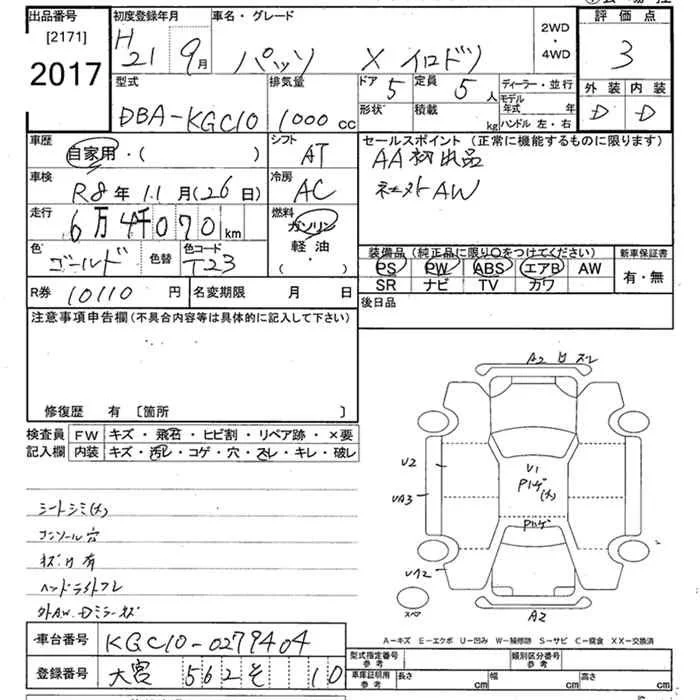 出品番号 初度登録年月 車名・グレード 2WD ・ 4WD 評価点
[2171]
2017 H 21 9月 パッソ X イロドリ 3
型式 排気量 ドア 5 定員 5人 ディーラー・並行 外装 内装
DBA-KGC10 1000 cc 形状 積載 kg モデル年式 年 D D
ハンドル 左・右
車歴 シフト セールスポイント(正常に機能するものに限ります)
自家用・( ) AT AA初出品
車検 冷房 社外AW
R8年 11月(26日) AC
走行 燃料
6万4千070km ガソリン
色 色替 色コード 軽油 装備品(純正品に限り○をつけてください) 新車保証書
ゴールド T23 ・( ) PS PW ABS エアB AW 有・無
SR ナビ TV カワ
R券 10110 円 名変期限 月 日 後日品
注意事項申告欄(不具合内容等は具体的に記入して下さい)
修復歴 有 〔箇所 〕
検査員 FW キズ・飛石・ヒビ割・リペア跡・×要
記入欄 内装 キズ・汚レ・コゲ・穴・スレ・キレ・破レ
シートシミ(大)
コンソール穴
キズ凹有
ヘッドライトスレ
外AW.Dミラーキズ
A2
U2
U1
UA3
UA2
スペア
A2
A-キズ E-エクボ U-凹み W-補修跡 S-サビ C-腐食 XX-交換済
車台番号 KGC10-0279404
型式指定番号 参考 類別区分番号 参考
登録番号 大宮 562 そ 10
車庫証明用 参考 長さ cm 幅 cm 高さ cm